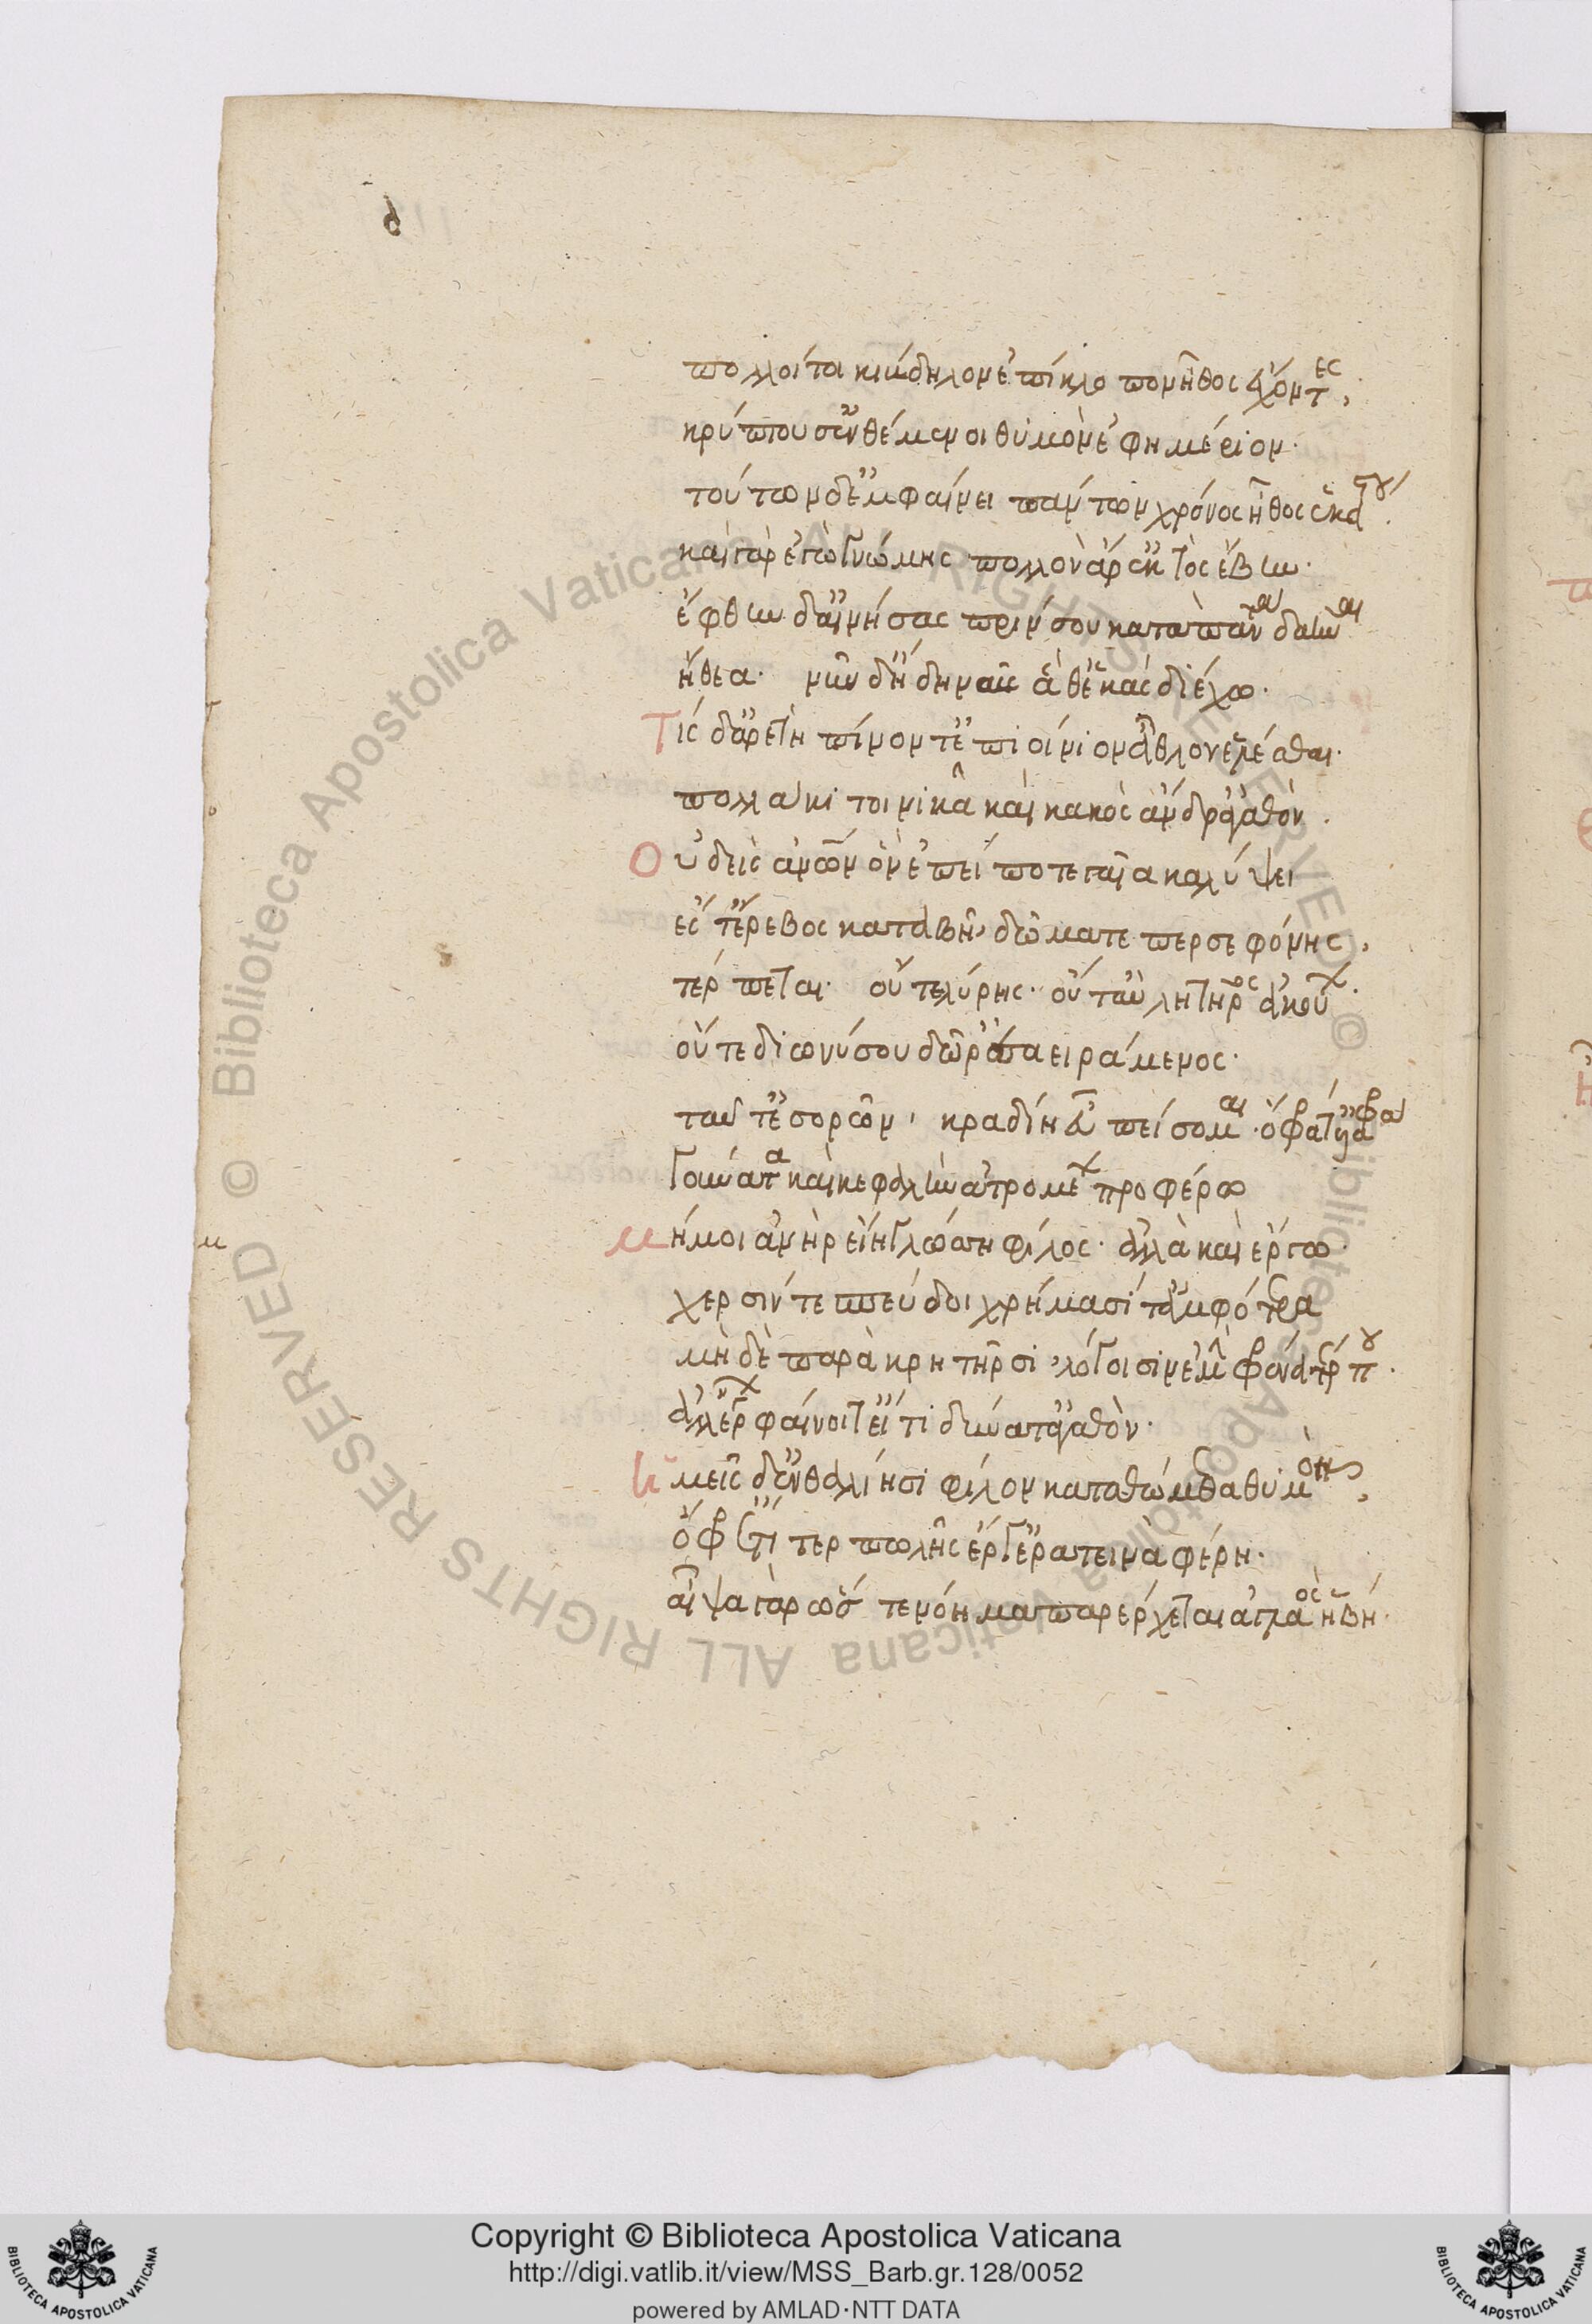 πολλοί τοι κίβδηλον ἐπίκλοπον ἦθος ἔχοντες,
κρύπτουσ' ἐνθέμενοι θυμὸν ἐφημέριον·
τούτων δ' ἐμφαίνει πάντων χρόνος ἦθος ἑκάστου.
καὶ γὰρ ἐγὼ γνώμης πολλὸν ἄρ' ἐκτὸς ἔβην·
ἔφθην δ' αἰνήσας πρίν σου κατὰ πάντα δαῆναι
ἤθεα· νῦν δ' ἤδη ναῦς ἅθ' ἑκὰς διέχω·
Τίς δ' ἀρετὴ πίνοντ' ἐπιοίνιον ἆθλον ἑλέσθαι·
πολλάκι τοι νικᾶ καὶ κακὸς ἄνδρ' ἀγαθόν.
Οὐδεὶς ἀνθρώπων ὃν ἐπεί ποτε γαῖα καλύψει
ἔς τ' ἔρεβος καταβῆ, δώματε περσεφόνης,
τέρπεται· οὔτε λύρης· οὔτ' αὐλητῆρος ἀκούων.
οὔτε διωνύσου δῶρ' ἐσαειράμενος·
ταῦτ' ἐσορῶν, κραδίη εὖ πείσομαι· ὄφρα τ' ἐλαφρὰ
γούνατα καὶ κεφαλὴν ἀτρομέως προφέρω
μή μοι ἀνὴρ εἴη γλώσση φίλος· ἀλλὰ καὶ ἔργω·
χερσίν τε σπεύδοι χρήμασί τ' ἀμφότερα
μὴ δὲ παρὰ κρητῆρσι, λόγοισιν ἐμὴν φρένα τέρποι.
ἀλλ' ἔρδων φαίνοιτ' εἴ τι δύναιτ' ἀγαθόν·
ἡμεῖς δ' ἐν θαλίησι φίλον καταθώμεθα θυμόν,
ὄφρ' ἔτι τερπωλῆς ἔργ' ἐρατεινὰ φέρη·
αἶψα γὰρ ὥστε νόημα παρέρχεται ἀγλαὸς ἥβη·
Copyright © Biblioteca Apostolica Vaticana
http://digi.vatlib.it/view/MSS_Barb.gr.128/0052
powered by AMLAD·NTT DATA